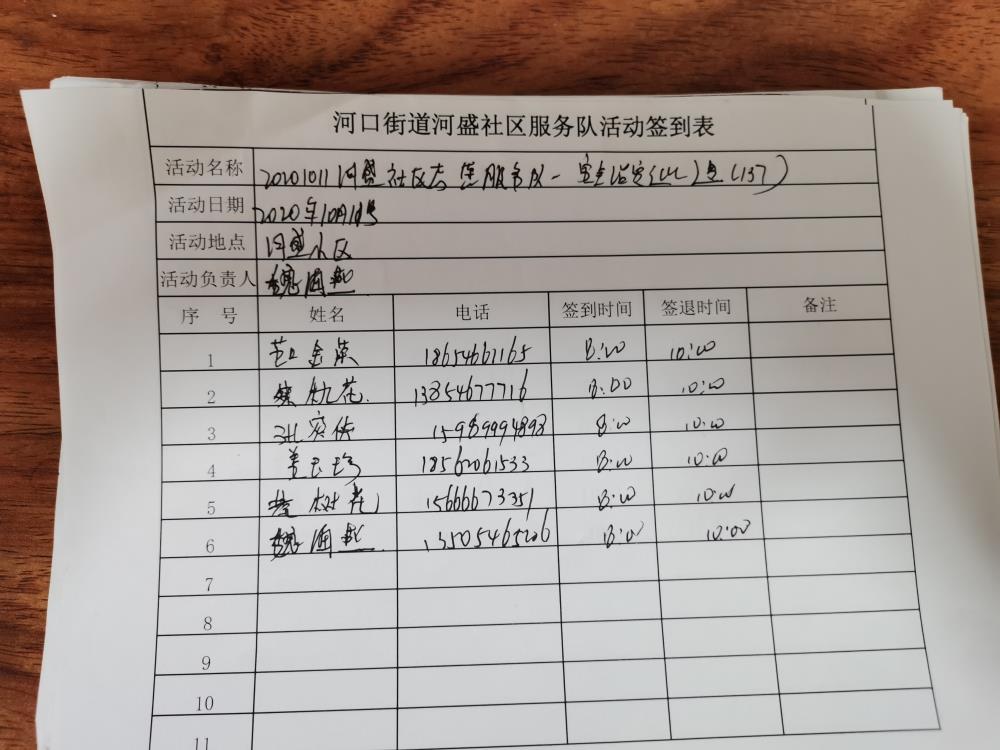 河口街道河盛社区服务队活动签到表
活动名称 20201011河盛社区志愿服务队一
活动日期 2020年10月
活动地点 河盛小区
活动负责人 魏海燕
序 号 姓名 电话 签到时间 签退时间 备注
1 金荣 18654661165 8:00 10:00
2 花 13854677716 8:00 10:00
3 15989994898 8:00 10:00
4 盖玉珍 18562061533 8:00 10:00
5 树花 15666673351 8:00 10:00
6 魏海燕 13505465206 8:00 10:00
7
8
9
10
11